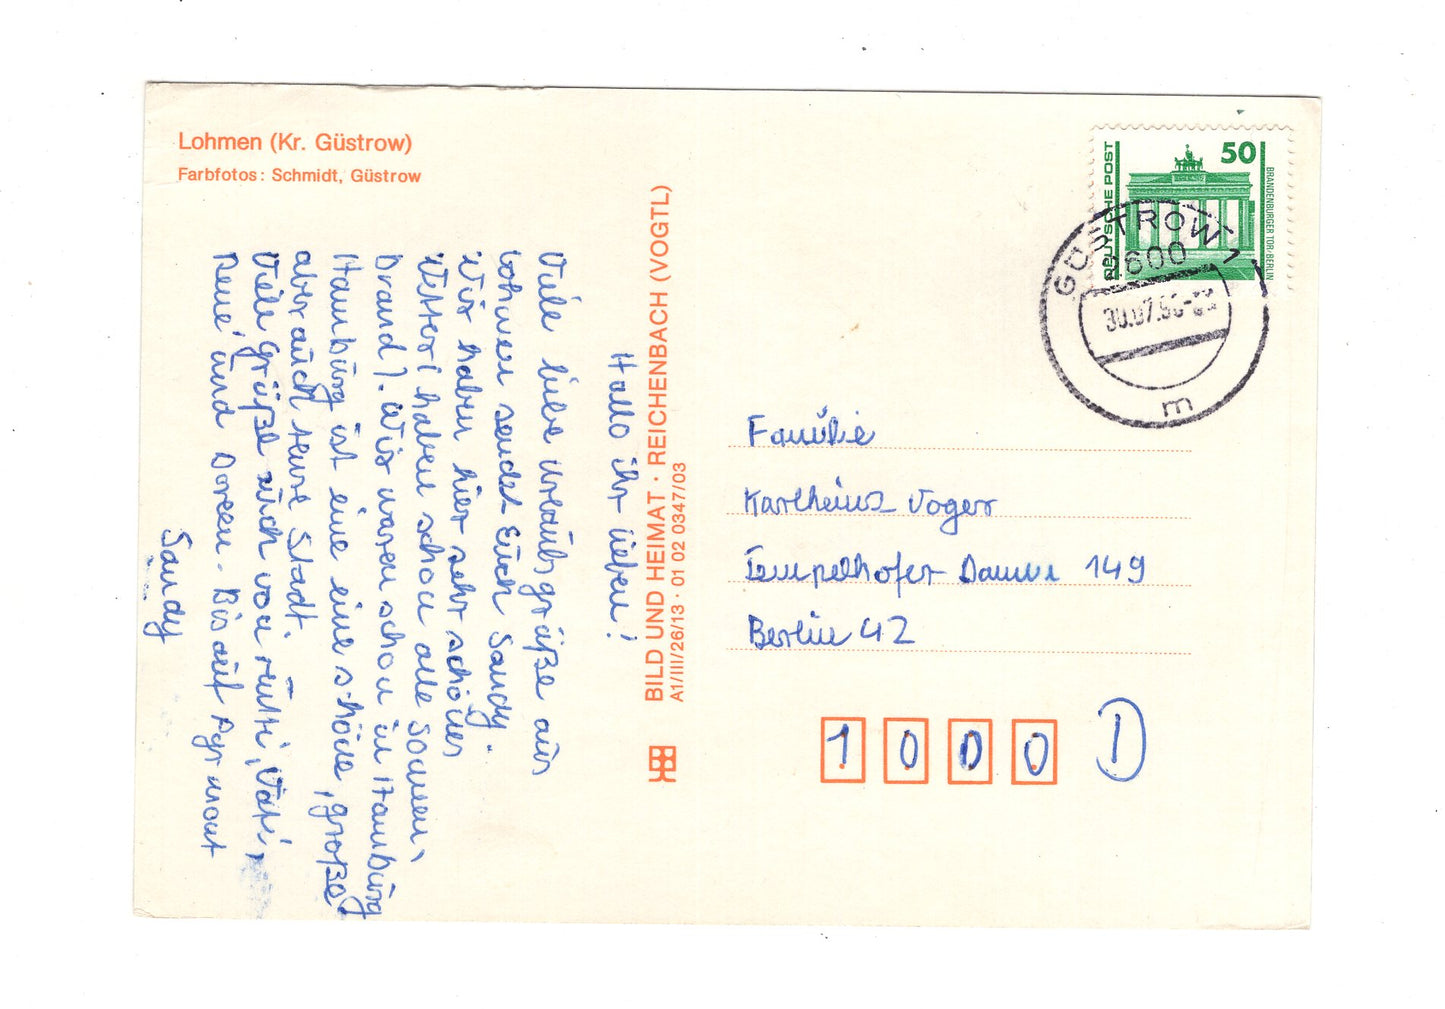 Lohmen (Kr. Güstrow)
Farbfotos: Schmidt, Güstrow
Hallo ihr lieben!
Viele liebe Urlaubsgrüße aus
Lohmen sendet Euch Sandy.
Wir haben hier sehr schönes
Wetter (haben schon alle Sonnen-
brand). Wir waren schon in Hamburg
Hamburg ist eine eine schöne, große
aber auch teure Stadt.
Viele Grüße auch von Mutti, Vati,
René und Doreen. Bis auf Pyrmont
Sandy
BILD UND HEIMAT · REICHENBACH (VOGTL)
A1/III/26/13 · 01 02 0347/03
DEUTSCHE POST
50
BRANDENBURGER TOR · BERLIN
GÜSTROW 1
2600
30.07.90
m
Familie
Karlheinz Voger
Tempelhofer Damm 149
Berlin 42
1 0 0 0
1